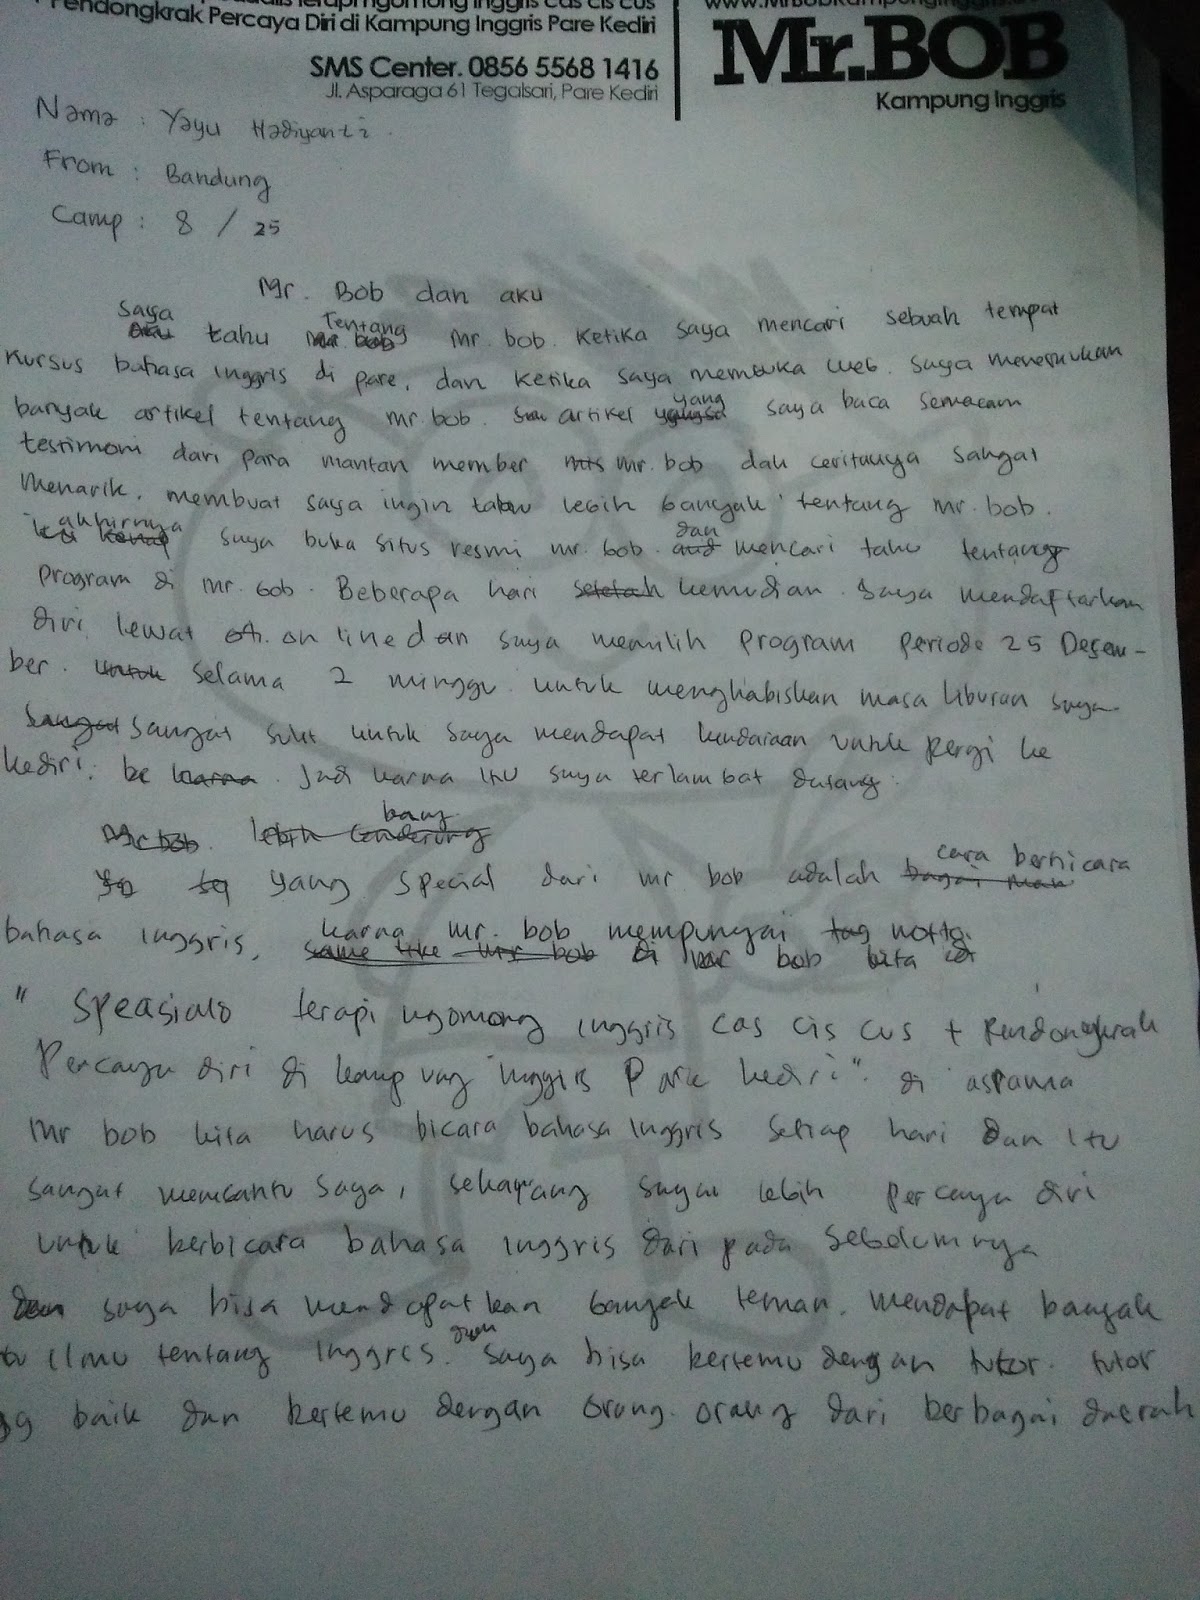 Pendongkrak Percaya Diri di Kampung Inggris Pare Kediri
SMS Center. 0856 5568 1416
Jl. Asparaga 61 Tegalsari, Pare Kediri
Mr.BOB
Kampung Inggris
Nama : Yayu Hadiyanti
From : Bandung
Camp : 8 / 25
Mr. Bob dan aku
saya tahu Tentang Mr. bob. Ketika saya mencari sebuah tempat
Kursus bahasa inggris di pare, dan ketika saya membuka web. saya menemukan
banyak artikel tentang mr. bob. artikel yang saya baca semacam
testimoni dari para mantan member mr. bob dan ceritanya sangat
menarik. membuat saya ingin tahu lebih banyak tentang mr. bob.
akhirnya saya buka situs resmi mr. bob. dan mencari tahu tentang
program di mr. bob. Beberapa hari kemudian. saya mendaftarkan
diri lewat on line dan saya memilih program periode 25 Desem-
ber. selama 2 minggu. untuk menghabiskan masa liburan saya.
sangat sulit untuk saya mendapat kendaraan untuk pergi ke
kediri. Jadi karna itu saya terlambat datang.
yang special dari mr bob adalah cara berbicara
bahasa inggris, karna mr. bob mempunyai
di bob kita
" Speasialo terapi ngomong inggris cas cis cus + Pendongkrak
Percaya diri di kampung inggris Pare kediri". di asrama
mr bob kita harus bicara bahasa inggris setiap hari dan itu
sangat membantu saya, sekarang saya lebih percaya diri
untuk berbicara bahasa inggris dari pada sebelumnya
saya bisa mendapatkan banyak teman. mendapat banyak
ilmu tentang inggris. dan saya bisa bertemu dengan tutor. tutor
yg baik dan bertemu dengan orang. orang dari berbagai daerah